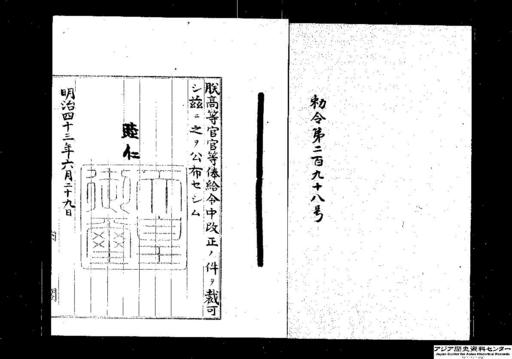 勅令第二百九十八号
朕高等官官等俸給令中改正ノ件ヲ裁可
シ茲ニ之ヲ公布セシム
睦仁
天皇御璽
明治四十三年六月二十九日
内閣
アジア歴史資料センター
Japan Center for Asian Historical Records